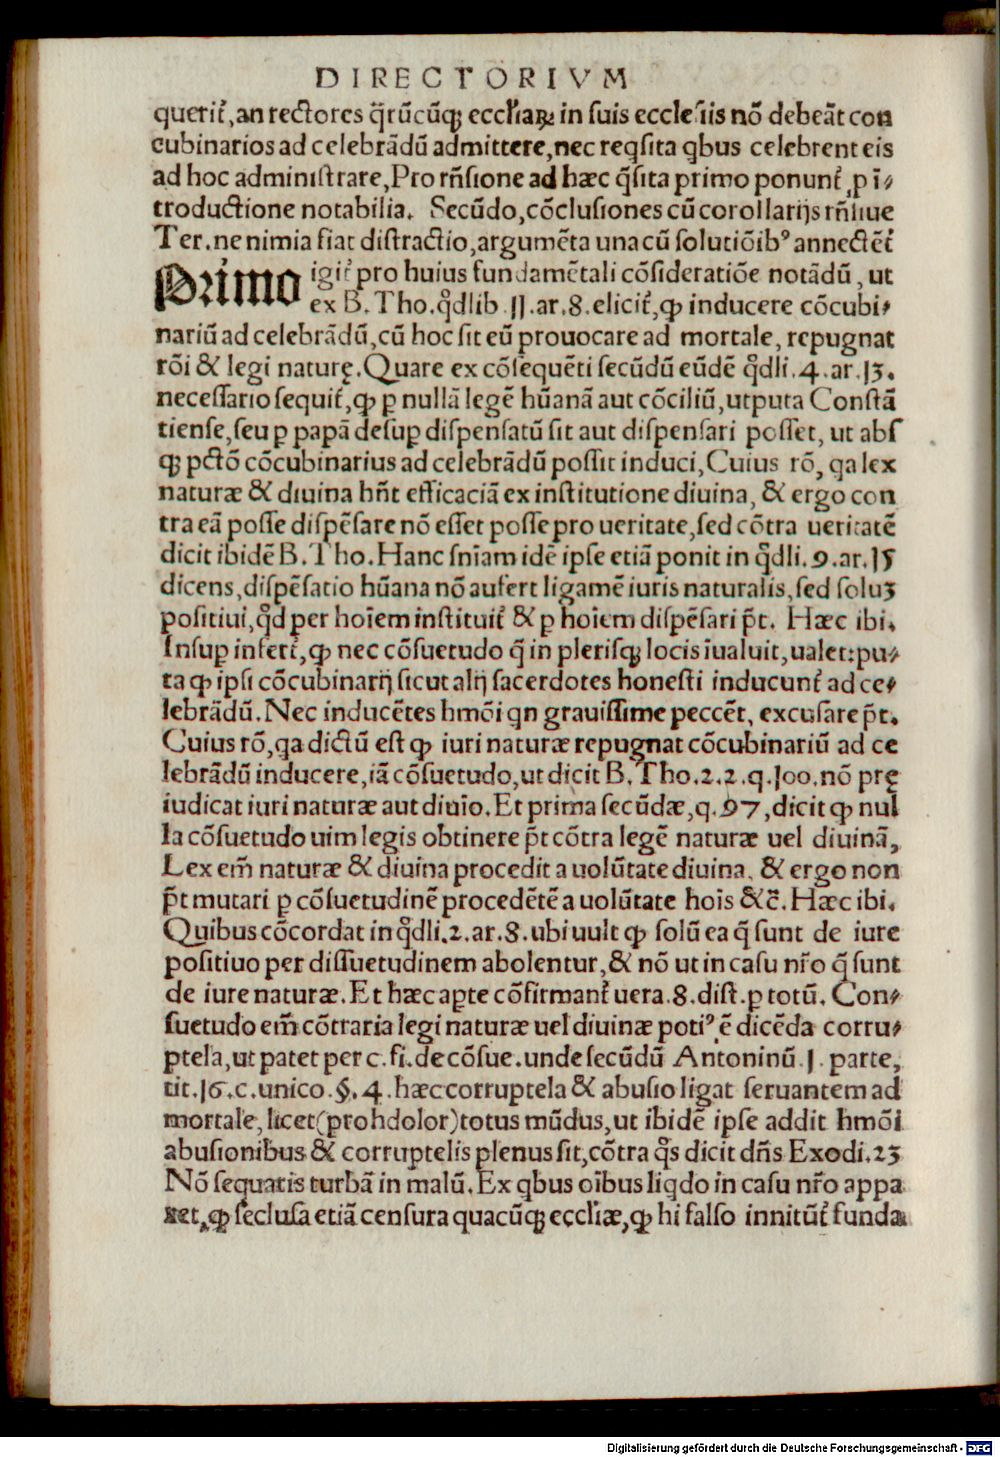 DIRECTORIVM
querit᷑, an rectores q̃rũcũqꝫ eccłiaꝝ in suis ecclesiis nõ debeãt con
cubinarios ad celebrãdũ admittere, nec reqsita qbus celebrent eis
ad hoc administrare, Pro rñsione ad hæc q̃sita primo ponunt᷑ ꝓ ĩ⸗
troductione notabilia. Secũdo, cõclusiones cũ corollarijs rñsiue
Ter. ne nimia fiat distractio, argumẽta una cũ solutiõibꝰ annectẽt᷑
Primo igit᷑ pro huius fundamẽtali cõsideratiõe notãdũ, ut
ex B. Tho. q̃dlib. II. ar. 8. elicit᷑, ꝙ inducere cõcubi⸗
nariũ ad celebrãdũ, cũ hoc sit eũ prouocare ad mortale, repugnat
rõi & legi naturę. Quare ex cõsequẽti secũdũ eũdẽ q̃dli. 4. ar. I3.
necessario sequit᷑, ꝙ ꝑ nullã legẽ hũanã aut cõciliũ, utputa Constã
tiense, seu ꝑ papã desuꝑ dispensatũ sit aut dispensari posset, ut absſ
qꝫ pctõ cõcubinarius ad celebrãdũ possit induci, Cuius rõ, qa lex
naturæ & diuina hñt efficaciã ex institutione diuina, & ergo con
tra eã posse dispẽsare nõ esset posse pro ueritate, sed cõtra ueritatẽ
dicit ibidẽ B. Tho. Hanc sniam idẽ ipse etiã ponit in q̃dli. 9. ar. I5
dicens, dispẽsatio hũana nõ aufert ligamẽ iuris naturalis, sed soluꝫ
positiui, q̃d per hoĩem instituit᷑ & ꝑ hoĩem dispẽsari p̃t. Hæc ibi.
Insuꝑ infert᷑, ꝙ nec cõsuetudo q̃ in plerisqꝫ locis ĩualuit, ualet: pu⸗
ta ꝙ ipsi cõcubinarij sicut alij sacerdotes honesti inducunt᷑ ad ce⸗
lebrãdũ. Nec inducẽtes hmõi qn grauissime peccẽt, excusare p̃t.
Cuius rõ, qa dictũ est ꝙ iuri naturæ repugnat cõcubinariũ ad ce
lebrãdũ inducere, iã cõsuetudo, ut dicit B. Tho. 2. 2. q. I00. nõ prę
iudicat iuri naturæ aut diuĩo. Et prima secũdæ, q. 97, dicit ꝙ nul
la cõsuetudo uim legis obtinere p̃t cõtra legẽ naturæ uel diuinã,
Lex em̃ naturæ & diuina procedit a uolũtate diuina. & ergo non
p̃t mutari ꝑ cõsuetudinẽ procedẽtẽ a uolũtate hoĩs &c̃. Hæc ibi.
Quibus cõcordat in q̃dli. 2. ar. 8. ubi uult ꝙ solũ ea q̃ sunt de iure
positiuo per dissuetudinem abolentur, & nõ ut in casu nr̃o q̃ sunt
de iure naturæ. Et hæc aꝑte cõfirmant᷑ uera. 8. dist. ꝑ totũ. Con⸗
suetudo em̃ cõtraria legi naturæ uel diuinæ potiꝰ ẽ dicẽda corru⸗
ptela, ut patet per c. fi. de cõsue. unde secũdũ Antoninũ. I. parte,
tit. I6. c. unico. §. 4. hæc corruptela & abusio ligat seruantem ad
mortale, licet (proh dolor) totus mũdus, ut ibidẽ ipse addit hmõi
abusionibus & corruptelis plenus sit, cõtra q̃s dicit dñs Exodi. 23
Nõ sequaris turbã in malũ. Ex qbus oĩbus liqdo in casu nr̃o appa
ret, ꝙ seclusa etiã censura quacũqꝫ eccłiæ, ꝙ hi falso innitũt᷑ funda
Digitalisierung gefördert durch die Deutsche Forschungsgemeinschaft - DFG